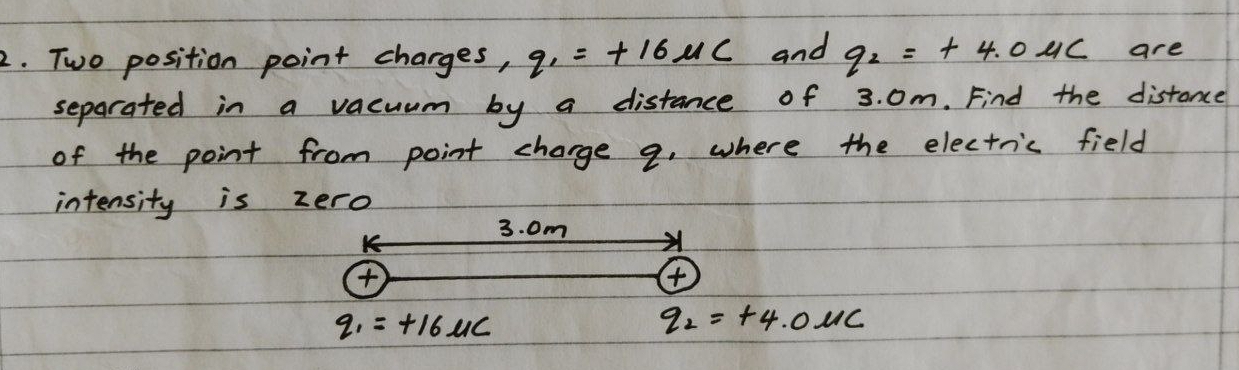 2. Two position point charges, q₁ = +16 μC and q₂ = + 4.0 μC are
separated in a vacuum by a distance of 3.0m. Find the distance
of the point from point charge q₁ where the electric field
intensity is zero
3.0m
+ +
q₁ = +16 μC q₂ = +4.0 μC